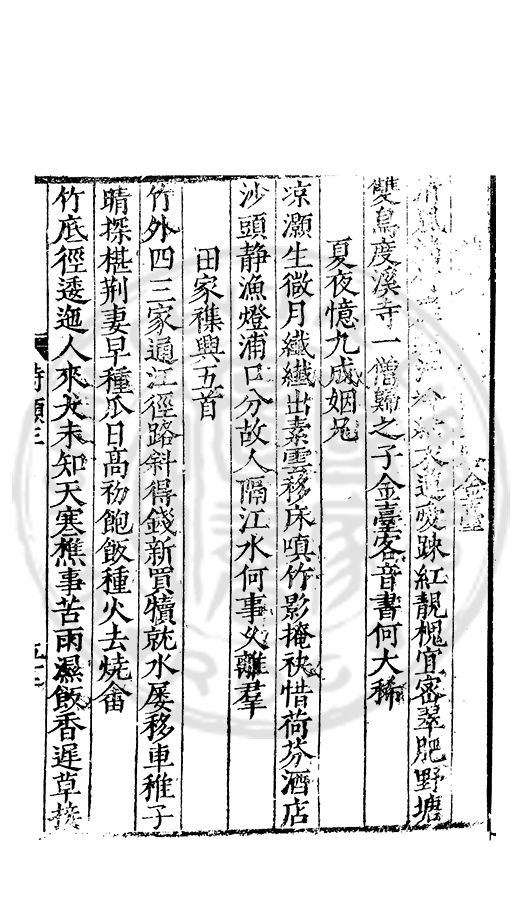 金臺
踈紅靚槐宜密翠肥野塘
雙鳥度溪寺一僧歸之子金臺客音書何大稀
夏夜憶九成姻兄
凉灝生微月纖纖出素雲移床嗔竹影掩袂惜荷芬酒店
沙頭静漁燈浦口分故人隔江水何事久離羣
田家雜興五首
竹外四三家通江徑路斜得錢新買犢就水屡移車稚子
晴探椹荆妻早種瓜日高初飽飯種火去燒畲
竹底徑逶迤人來犬未知天寒樵事苦雨濕飯香遲草